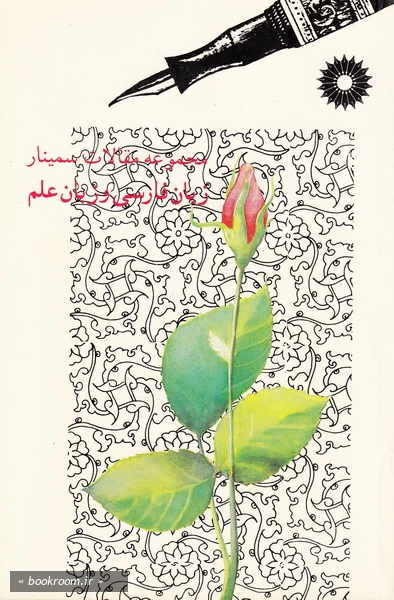 مجموعه مقالات سمینار
زبان فارسی و زبان علم
« bookroom.ir »